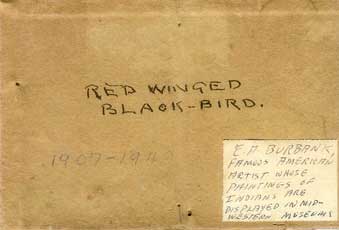 RED WINGED
BLACK-BIRD.
E.A BURBANK,
FAMOUS AMERICAN
ARTIST WHOSE
PAINTINGS OF
INDIANS ARE
DISPLAYED IN MID-
WESTERN MUSEUMS